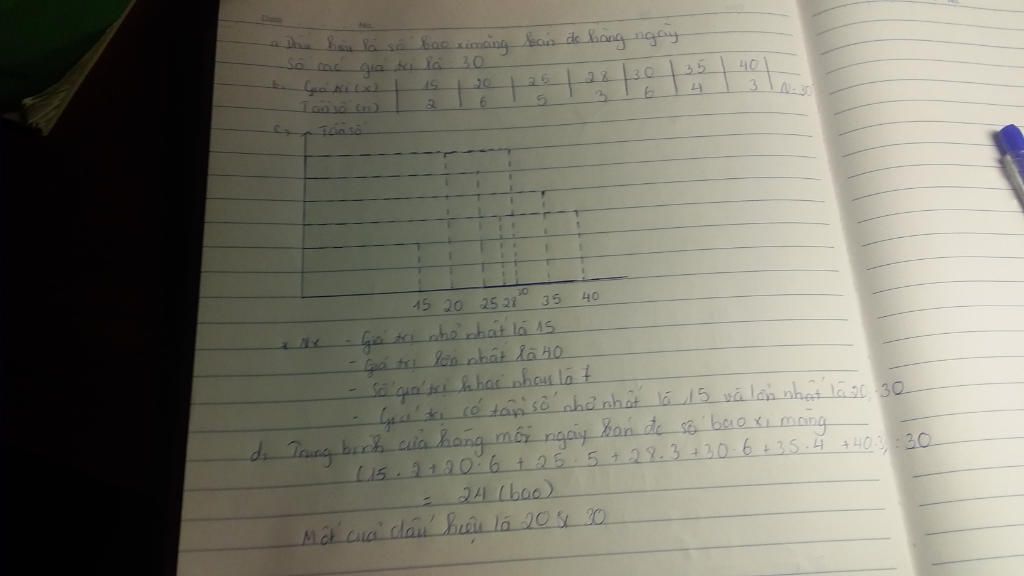 a. Dấu hiệu là số bao xi măng bán đc hằng ngày
Số các giá trị là: 30
b. Giá trị (x) | 15 | 20 | 25 | 28 | 30 | 35 | 40 |
Tần số (n) | 2 | 6 | 5 | 3 | 6 | 4 | 3 | N=30
c, Tần số
15 20 25 28 30 35 40
* Nx - Giá trị nhỏ nhất là 15
- Giá trị lớn nhất là 40
- Số giá trị khác nhau là 7
- Giá trị có tần số nhỏ nhất là 15 và lớn nhất là 20, 30
d, Trung bình cửa hàng mỗi ngày bán đc số bao xi măng
(15.2+20.6+25.5+28.3+30.6+35.4+40.3):30
= 24 (bao)
Mốt của dấu hiệu là 20 & 30